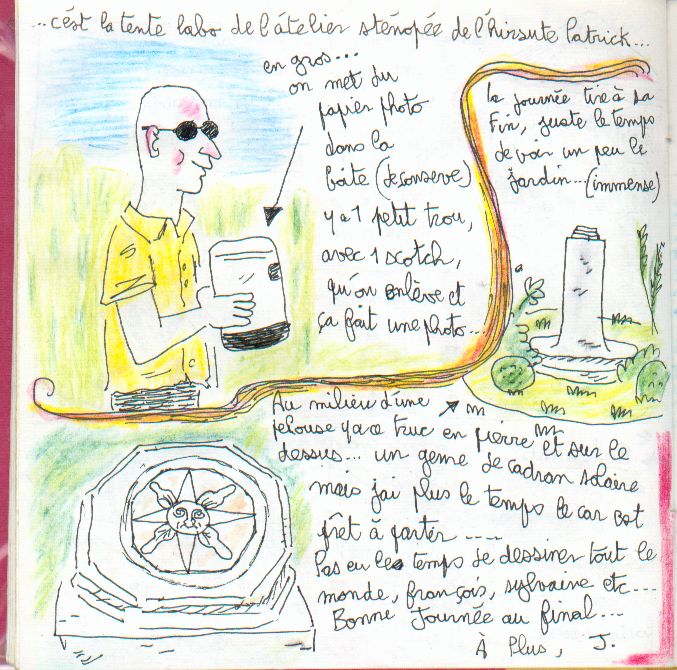 ..c'est la tente labo de l'atelier sténopée de l'hirsute Patrick...
en gros...
on met du
papier photo
dans la
boite (de conserve)
y a 1 petit trou,
avec 1 scotch,
qu'on enlève et
ça fait une photo...
la journée tire à sa
fin, juste le temps
de voir un peu le
jardin...(immense)
Au milieu d'une
pelouse ya ce truc en pierre et sur le
dessus... un genre de cadran solaire
mais j'ai plus le temps le car est
prêt à partir ----
Pas eu le temps de dessiner tout le
monde, françois, sylvaine etc...
Bonne Journée au final...
À Plus, J.